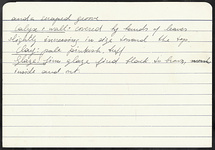 and a scraped groove
wall: covered by bands of leaves
slightly increasing in size toward the top
Clay: pale pinkish buff
Glaze: glaze fired black to
inside and out